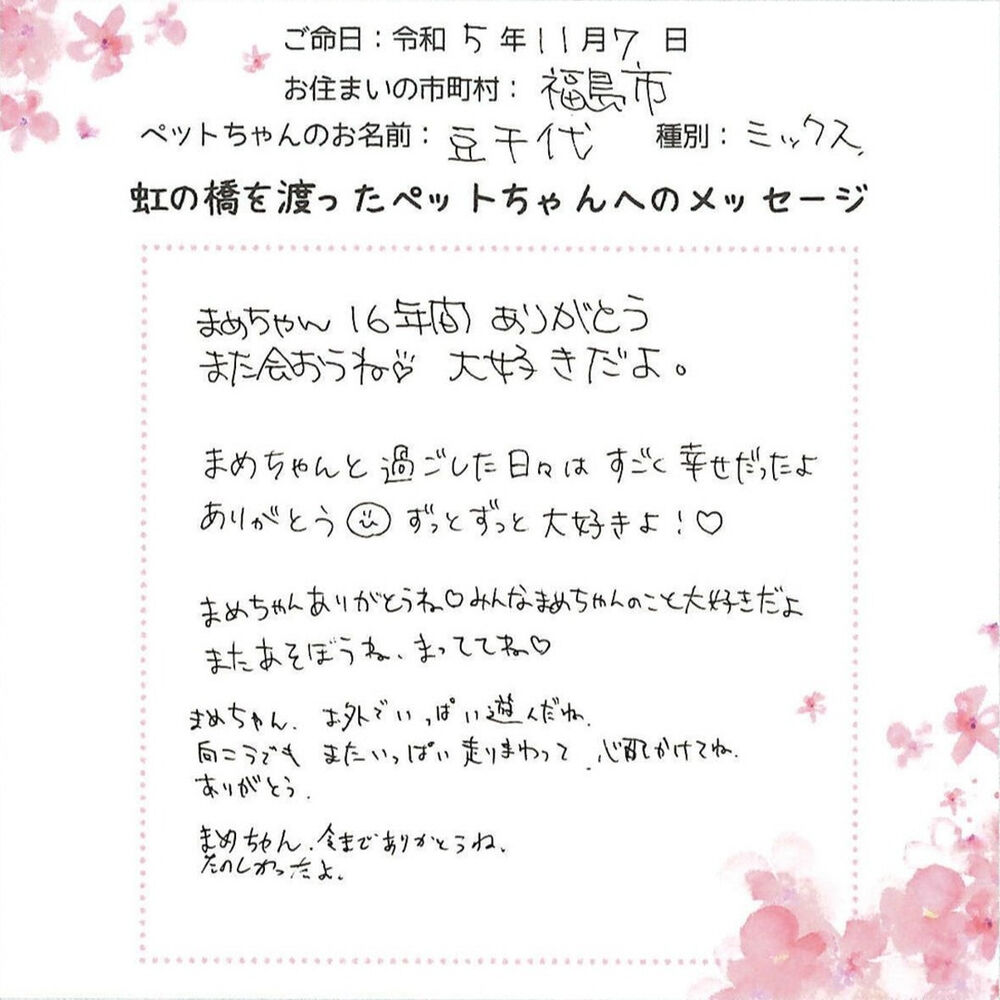 ご命日：令和 5 年 11 月 7 日
お住まいの市町村： 福島市
ペットちゃんのお名前： 豆千代 種別： ミックス
虹の橋を渡ったペットちゃんへのメッセージ
まめちゃん 16年間 ありがとう
また会おうね♡ 大好きだよ。
まめちゃんと過ごした日々は すごく幸せだったよ
ありがとう☺ ずっとずっと大好きよ！♡
まめちゃんありがとうね♡みんなまめちゃんのこと大好きだよ
またあそぼうね、まっててね♡
まめちゃん、お外でいっぱい遊んだね、
向こうでも またいっぱい走りまわって、心配かけてね、
ありがとう、
まめちゃん、今までありがとうね、
たのしかったよ、